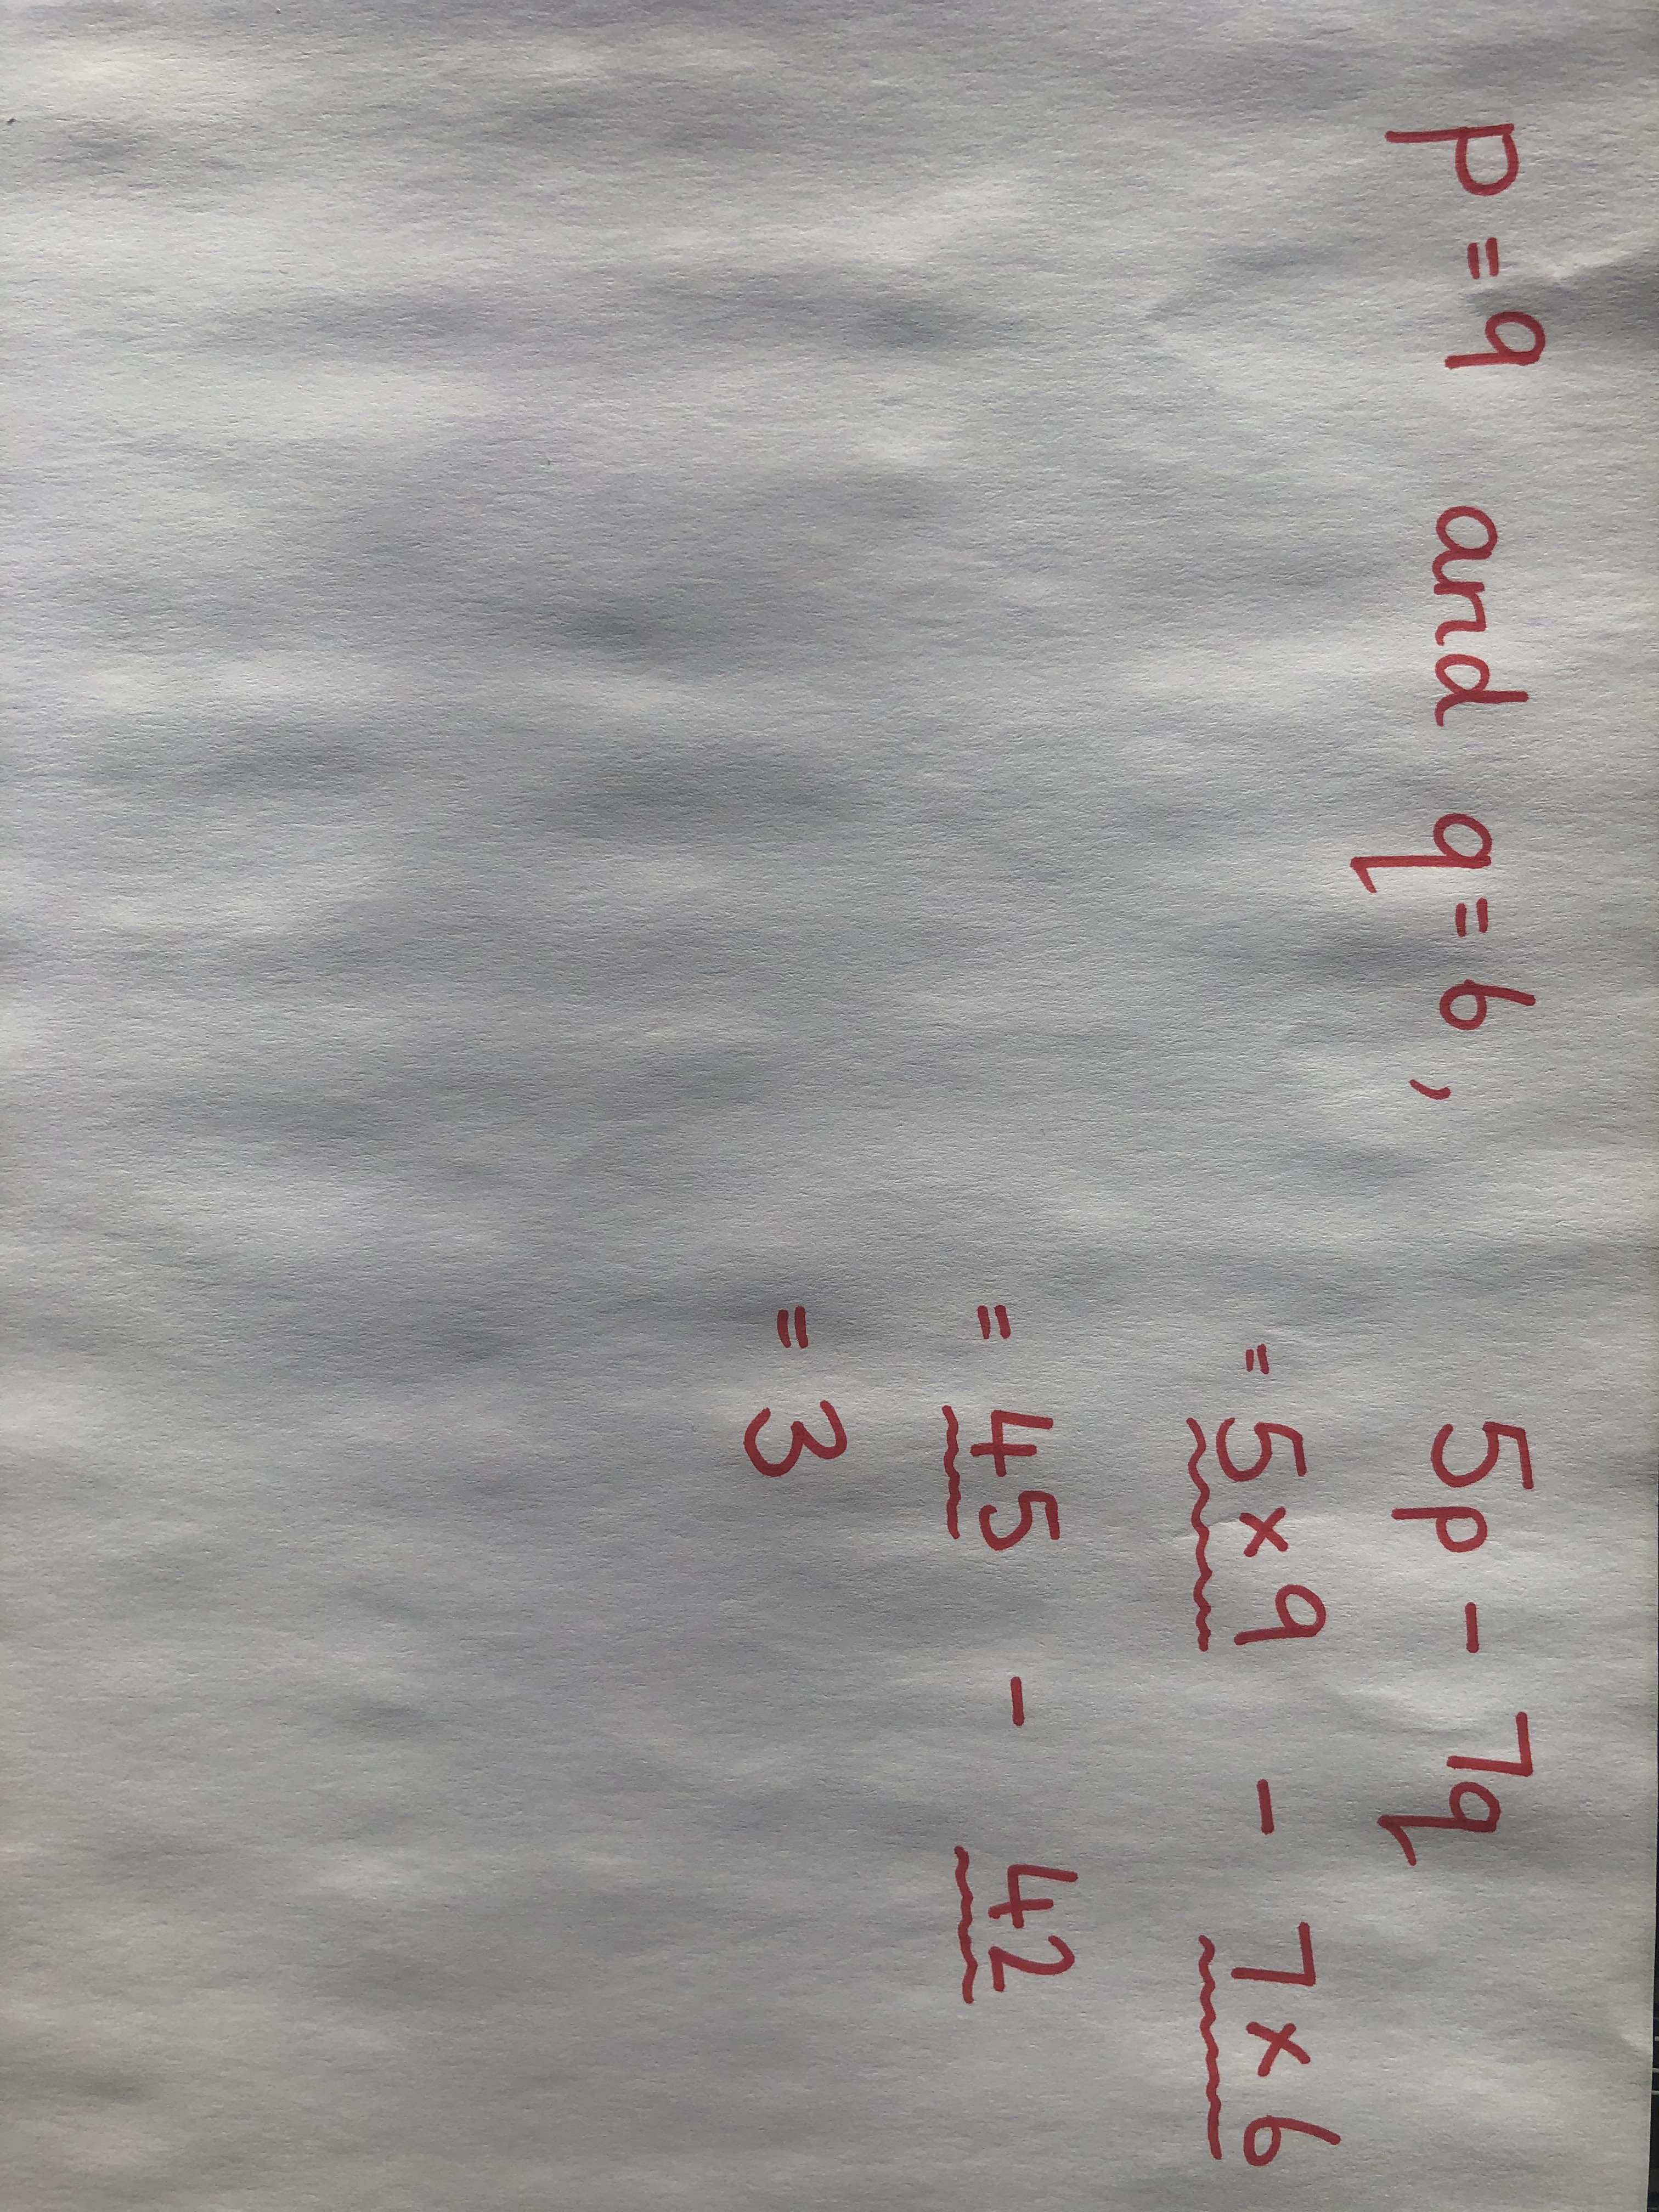 p = 9 and q = 6, 5p - 7q
= 5 x 9 - 7 x 6
= 45 - 42
= 3